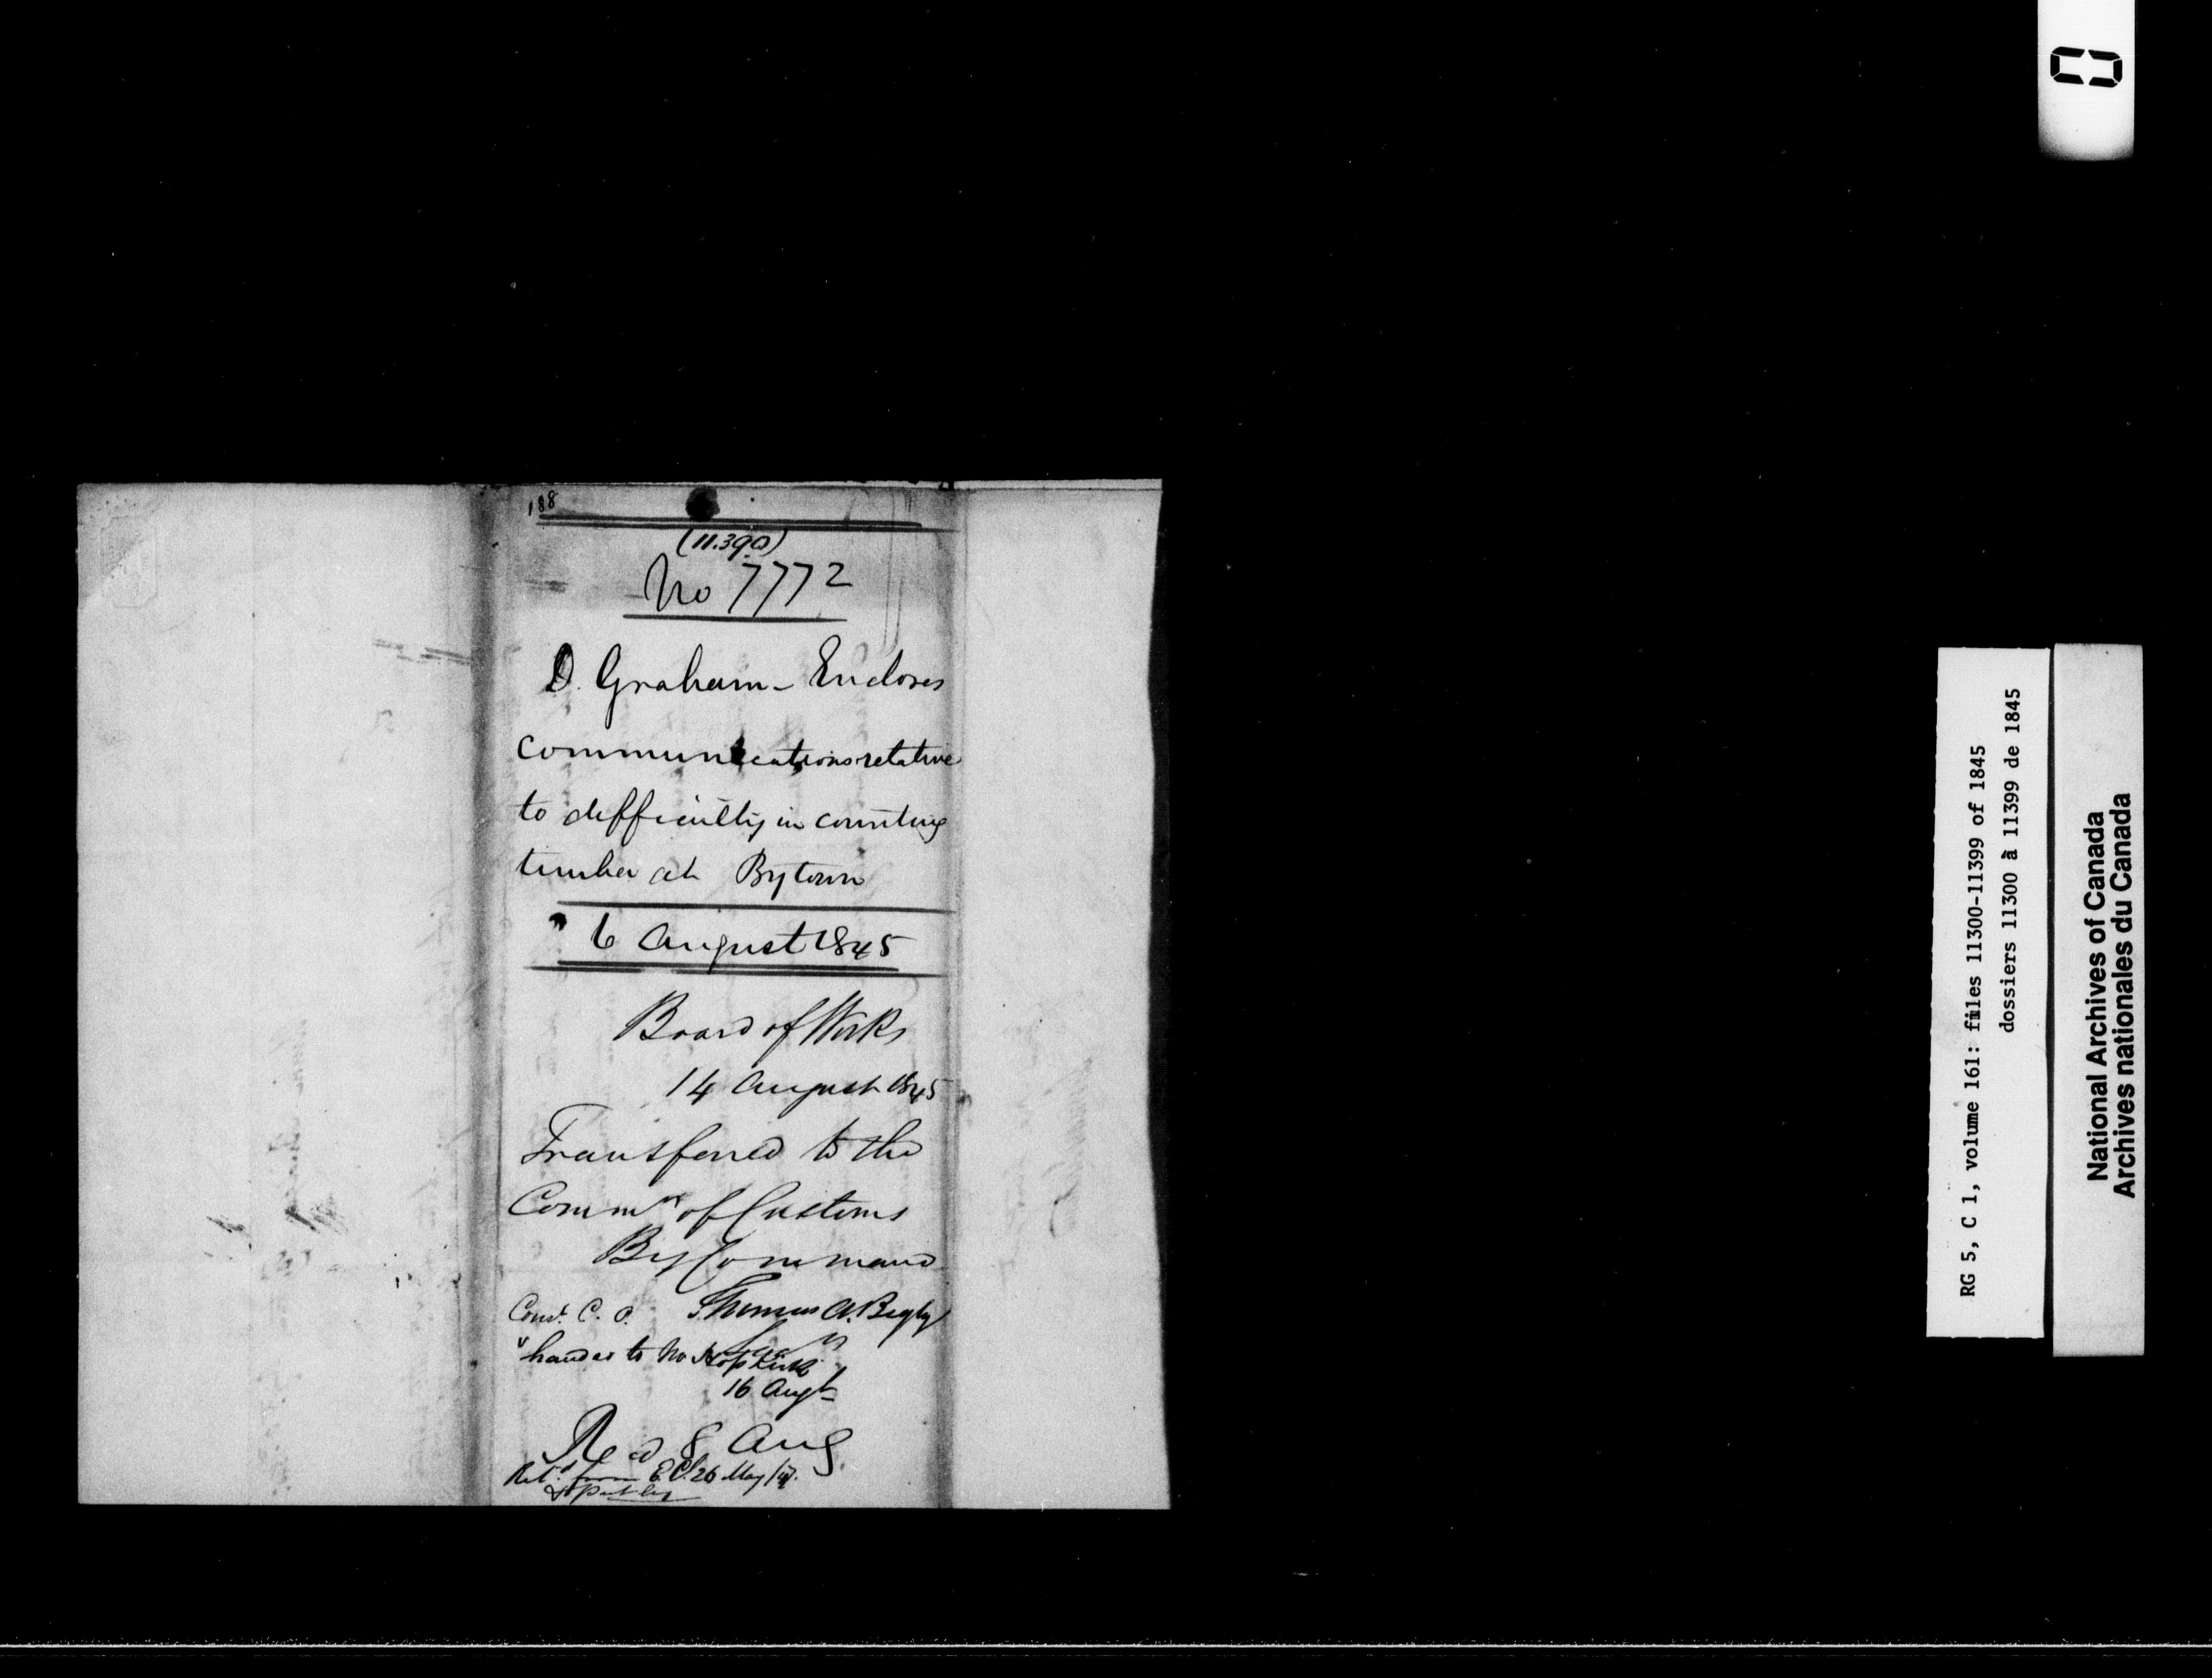 188
(11.390)
No 7772
D. Graham - Encloses
communications relative
to difficulty in counting
timber at Bytown
6 August 1845
Board of Works
14 August 1845
Transferred to the
Commr of Customs
By Command
Thomas A. Begly
Secy
Cons. C. O.
" handed to Mr Hopkirk
16 Augt
Recd 8 Aug
Retd from E.C. 26 May/47.
RG 5, C 1, volume 161: files 11300-11399 of 1845
dossiers 11300 à 11399 de 1845
National Archives of Canada
Archives nationales du Canada